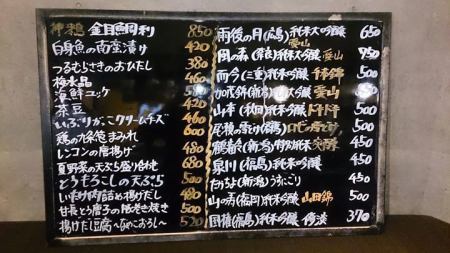 金目鯛 850
白身魚の南蛮漬け 420
つるむらさきのおひたし 380
460
海鮮ユッケ 580
茶豆 420
いぶりがっこクリームチーズ 460
鶏の九条葱まみれ 600
レンコンの唐揚げ 480
夏野菜の天ぷら盛り合わせ 680
とうもろこしの天ぷら 500
しいたけ肉詰め揚げだし 480
甘長とう唐子の豚巻き焼き 500
揚げだし豆腐〜なめこおろし〜 520
雨後の月(広島)純米大吟醸 愛山 650
風の森(奈良)純米大吟醸 愛山 750
而今(三重)純米吟醸 千本錦 500
加茂錦(新潟)純米大吟醸 愛山 500
山本(秋田)純米吟醸 ドキドキ 500
尾瀬の雪どけ(群馬) 500
鶴齢(新潟)特別純米 発酵 450
泉川(福島)純米吟醸 450
たかちよ(新潟)うすにごり 450
山の寿(福岡)純米吟醸 山田錦 500
国権(福島)純米吟醸 370